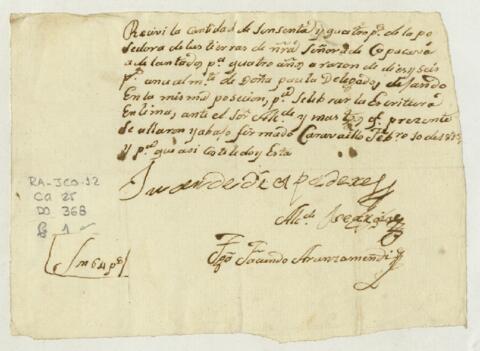 Recivi la cantidad de sensenta y quatro p.s de la po
sedora de las tierras de nrâ Señora de Copacavã
adelantados p.r quatro años a razon de dies y seis
p.s anual m.te de Doña paula Delgado, dejando
En la misma poseción, p.a selebrar la Escritura
En lima, ante el Sor Alc.de y mas tgõs. q.e prezente
se allaron y abajo firmados Caravaillo Feb.ro 10 de
y p.a que asi coste lo doy Esta
Juan de Dios
Alc.de
Tgõ Facundo Aranzamendi
Son 64 p.s
RA-JCO-12
Ca 25
DO 368
f 1